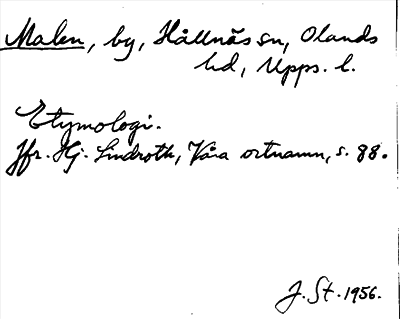 Malen, by, Hållnäs sn, Olands
hd, Upps. l.
Etymologi.
Jfr. Hj. Lindroth, Våra ortnamn, s. 88.
J. St. 1956.